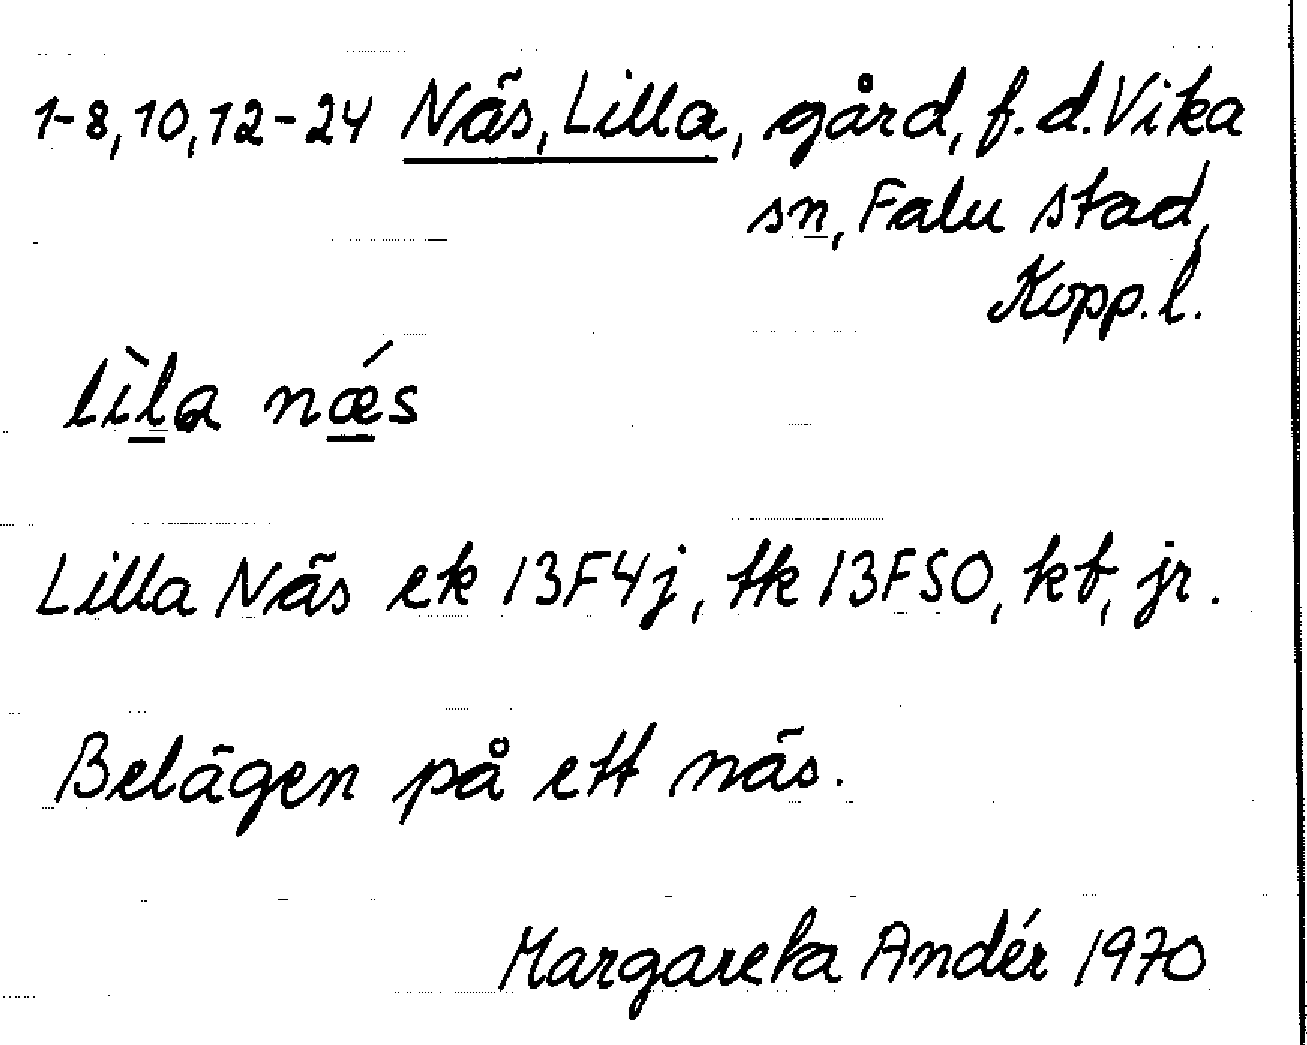 1-8, 10, 12-24 Näs, Lilla, gård, f.d. Vika
sn, Falu stad,
Kopp. l.
lìla nǽs
Lilla Näs ek 13F4j, tk 13F50, kb, jr.
Belägen på ett näs.
Margareta Andér 1970